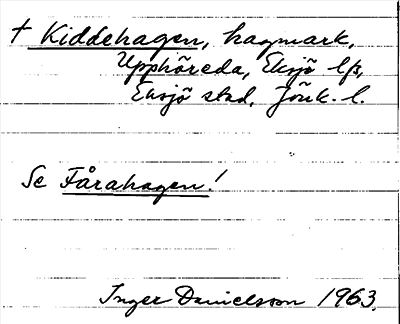 † Kiddehagen, hagmark,
Upphöreda, Eksjö lfs,
Eksjö stad, Jönk. l.
Se Fårahagen!
Inger Danielsson 1963.